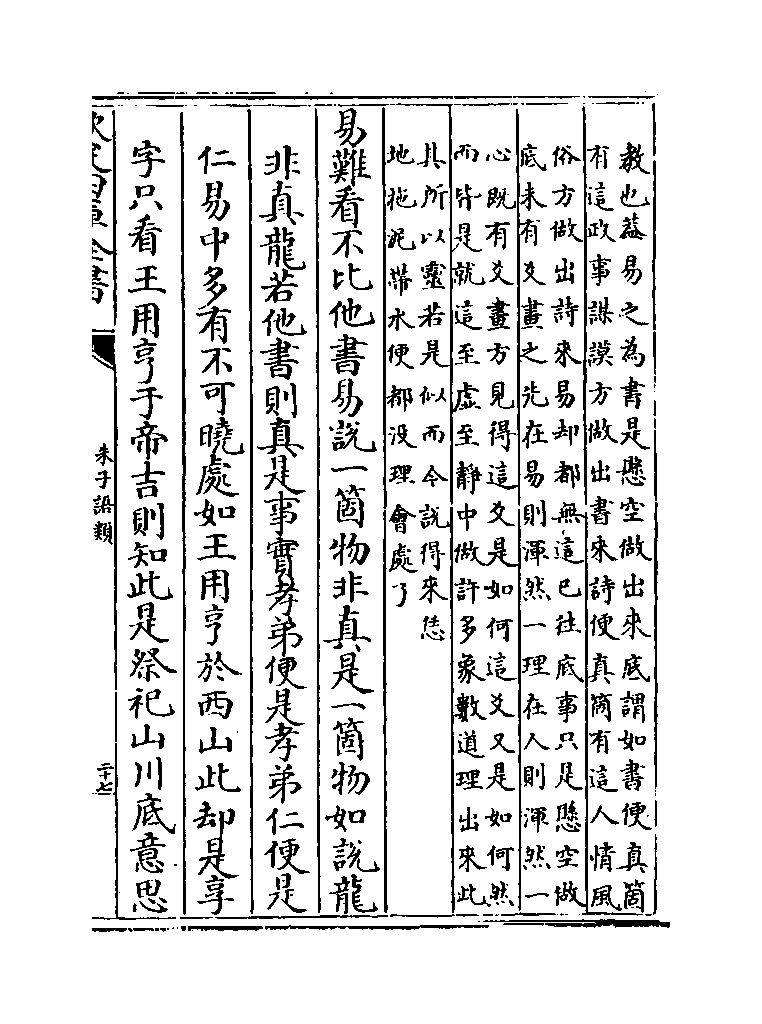 教也蓋易之為書是懸空做出來底謂如書便真箇
有這政事謀謨方做出書來詩便真箇有這人情風
俗方做出詩來易却都無這已往底事只是懸空做
底未有爻畫之先在易則渾然一理在人則渾然一
心既有爻畫方見得這爻是如何這爻又是如何然
而皆是就這至虛至靜中做許多象數道理出來此
其所以靈若是似而今說得來恁
地拖泥帶水便都没理會處了
易難看不比他書易說一箇物非真是一箇物如說龍
非真龍若他書則真是事實孝弟便是孝弟仁便是
仁易中多有不可曉處如王用亨於西山此却是享
字只看王用亨于帝吉則知此是祭祀山川底意思
欽定四庫全書
朱子語類
二十七